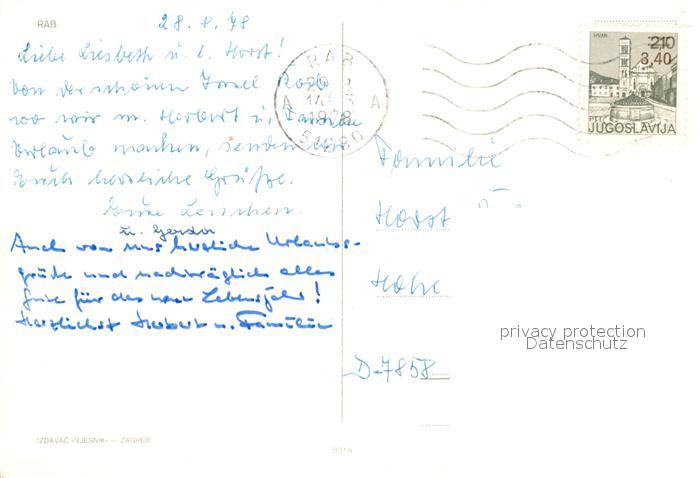 RAB
28.8.78
Liebe Liesbeth u. l. Horst!
Von der schönen Insel Rab
wo wir m. Herbert u. Familie
Urlaub machen, senden wir
Euch herzliche Grüße.
Eure
u. Gerda
Auch von uns herzliche Urlaubs-
grüße und nachträglich alles
Gute für das neue Lebensjahr!
Herzlichst Herbert u. Familie
IZDAVAČ »VJESNIK« — ZAGREB
RAB
A A
1978
51280
HVAR
2,10
3,40
PTT
JUGOSLAVIJA
Familie
Horst
D-7858
privacy protection
Datenschutz